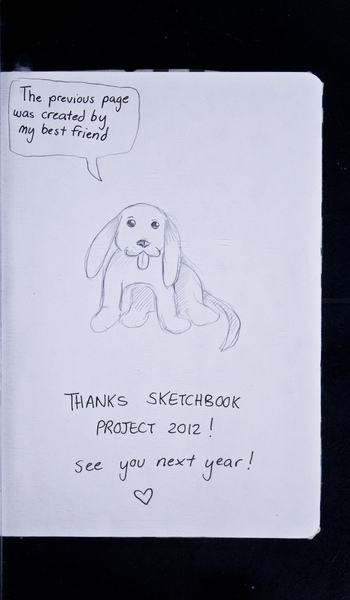 The previous page
was created by
my best friend
THANKS SKETCHBOOK
PROJECT 2012!
see you next year!